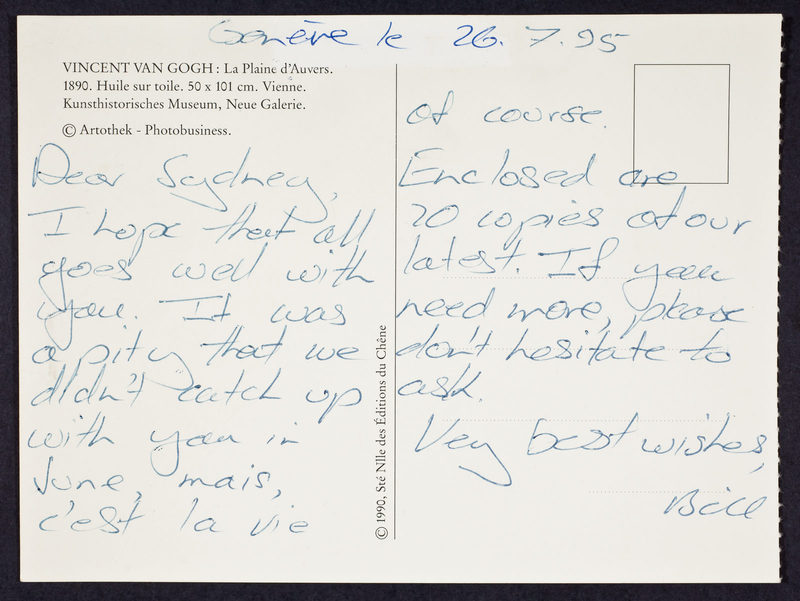 Genève le 26.7.95
VINCENT VAN GOGH : La Plaine d'Auvers.
1890. Huile sur toile. 50 x 101 cm. Vienne.
Kunsthistorisches Museum, Neue Galerie.
© Artothek - Photobusiness.
Dear Sydney,
I hope that all
goes well with
you. It was
a pity that we
didn't catch up
with you in
June, mais,
c'est la vie
© 1990, Sté Nlle des Éditions du Chêne
of course.
Enclosed are
20 copies of our
latest. If you
need more, please
don't hesitate to
ask.
Very best wishes,
Bill